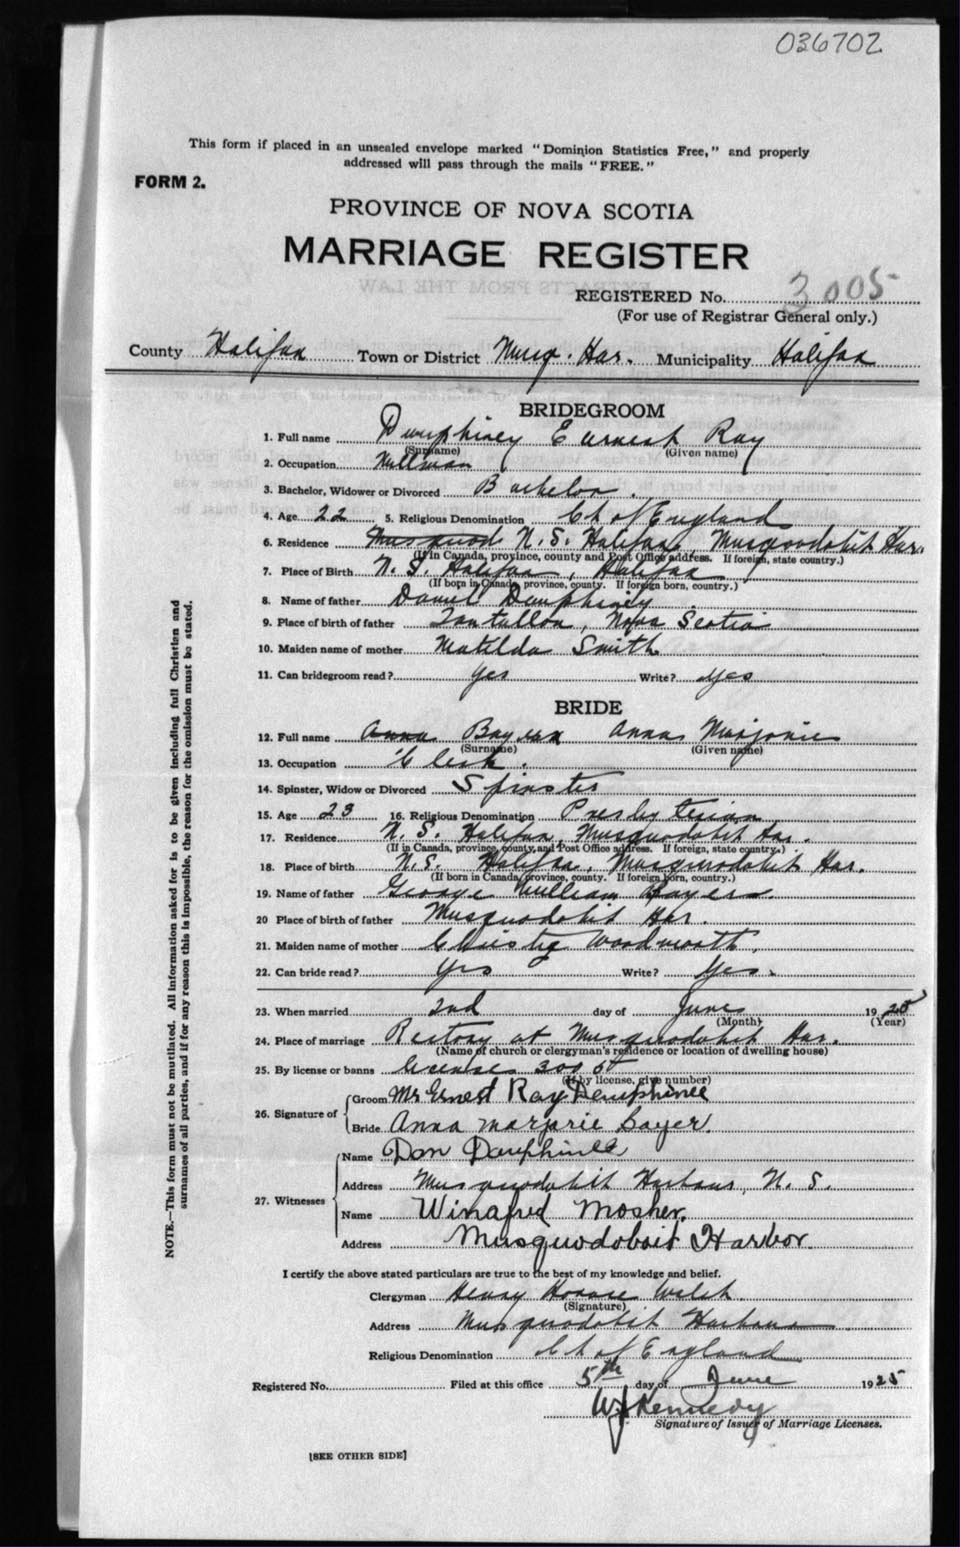 036702
This form if placed in an unsealed envelope marked "Dominion Statistics Free," and properly
addressed will pass through the mails "FREE."
FORM 2.
PROVINCE OF NOVA SCOTIA
MARRIAGE REGISTER
REGISTERED No. 3005
(For use of Registrar General only.)
County Halifax Town or District Musq. Har. Municipality Halifax
BRIDEGROOM
1. Full name Dauphiney Earnest Ray
(Surname) (Given name)
2. Occupation Millman
3. Bachelor, Widower or Divorced Bachelor.
4. Age 22 5. Religious Denomination Ch of England
6. Residence N. S. Halifax, Musquodobit Har.
(If in Canada, province, county and Post Office address. If foreign, state country.)
7. Place of Birth N. S. Halifax, Halifax
(If born in Canada, province, county. If foreign born, country.)
8. Name of father Daniel Dauphiney
9. Place of birth of father Tantallon, Nova Scotia
10. Maiden name of mother Matilda Smith
11. Can bridegroom read? Yes Write? Yes
BRIDE
12. Full name Anna Bayers Anna Marjorie
(Surname) (Given name)
13. Occupation Clerk.
14. Spinster, Widow or Divorced Spinster
15. Age 23 16. Religious Denomination Presbyterian
17. Residence N. S. Halifax, Musquodobit Har.
(If in Canada, province, county and Post Office address. If foreign, state country.)
18. Place of birth N.S. Halifax, Musquodobit Har.
(If born in Canada, province, county. If foreign born, country.)
19. Name of father George William Bayers
20 Place of birth of father Musquodobit Har.
21. Maiden name of mother Christy Woodworth.
22. Can bride read? Yes Write? Yes.
23. When married 2nd day of June 1925
(Month) (Year)
24. Place of marriage Rectory at Musquodobit Har.
(Name of church or clergyman's residence or location of dwelling house)
25. By license or banns License 3005
(If by license, give number)
26. Signature of Groom Mr Ernest Ray Dauphinee
Bride Anna Marjorie Bayer.
27. Witnesses Name Dan Dauphinee
Address Musquodobit Harbour, N. S.
Name Winafred Mosher.
Address Musquodoboit Harbor.
I certify the above stated particulars are true to the best of my knowledge and belief.
Clergyman Henry Horace Walsh
(Signature)
Address Musquodobit Harbour
Religious Denomination Ch of England
Registered No. Filed at this office 5th day of June 1925
W J Kennedy
Signature of Issuer of Marriage Licenses.
[SEE OTHER SIDE]
NOTE.—This form must not be mutilated. All information asked for is to be given including full Christian and
surnames of all parties, and if for any reason this is impossible, the reason for the omission must be stated.